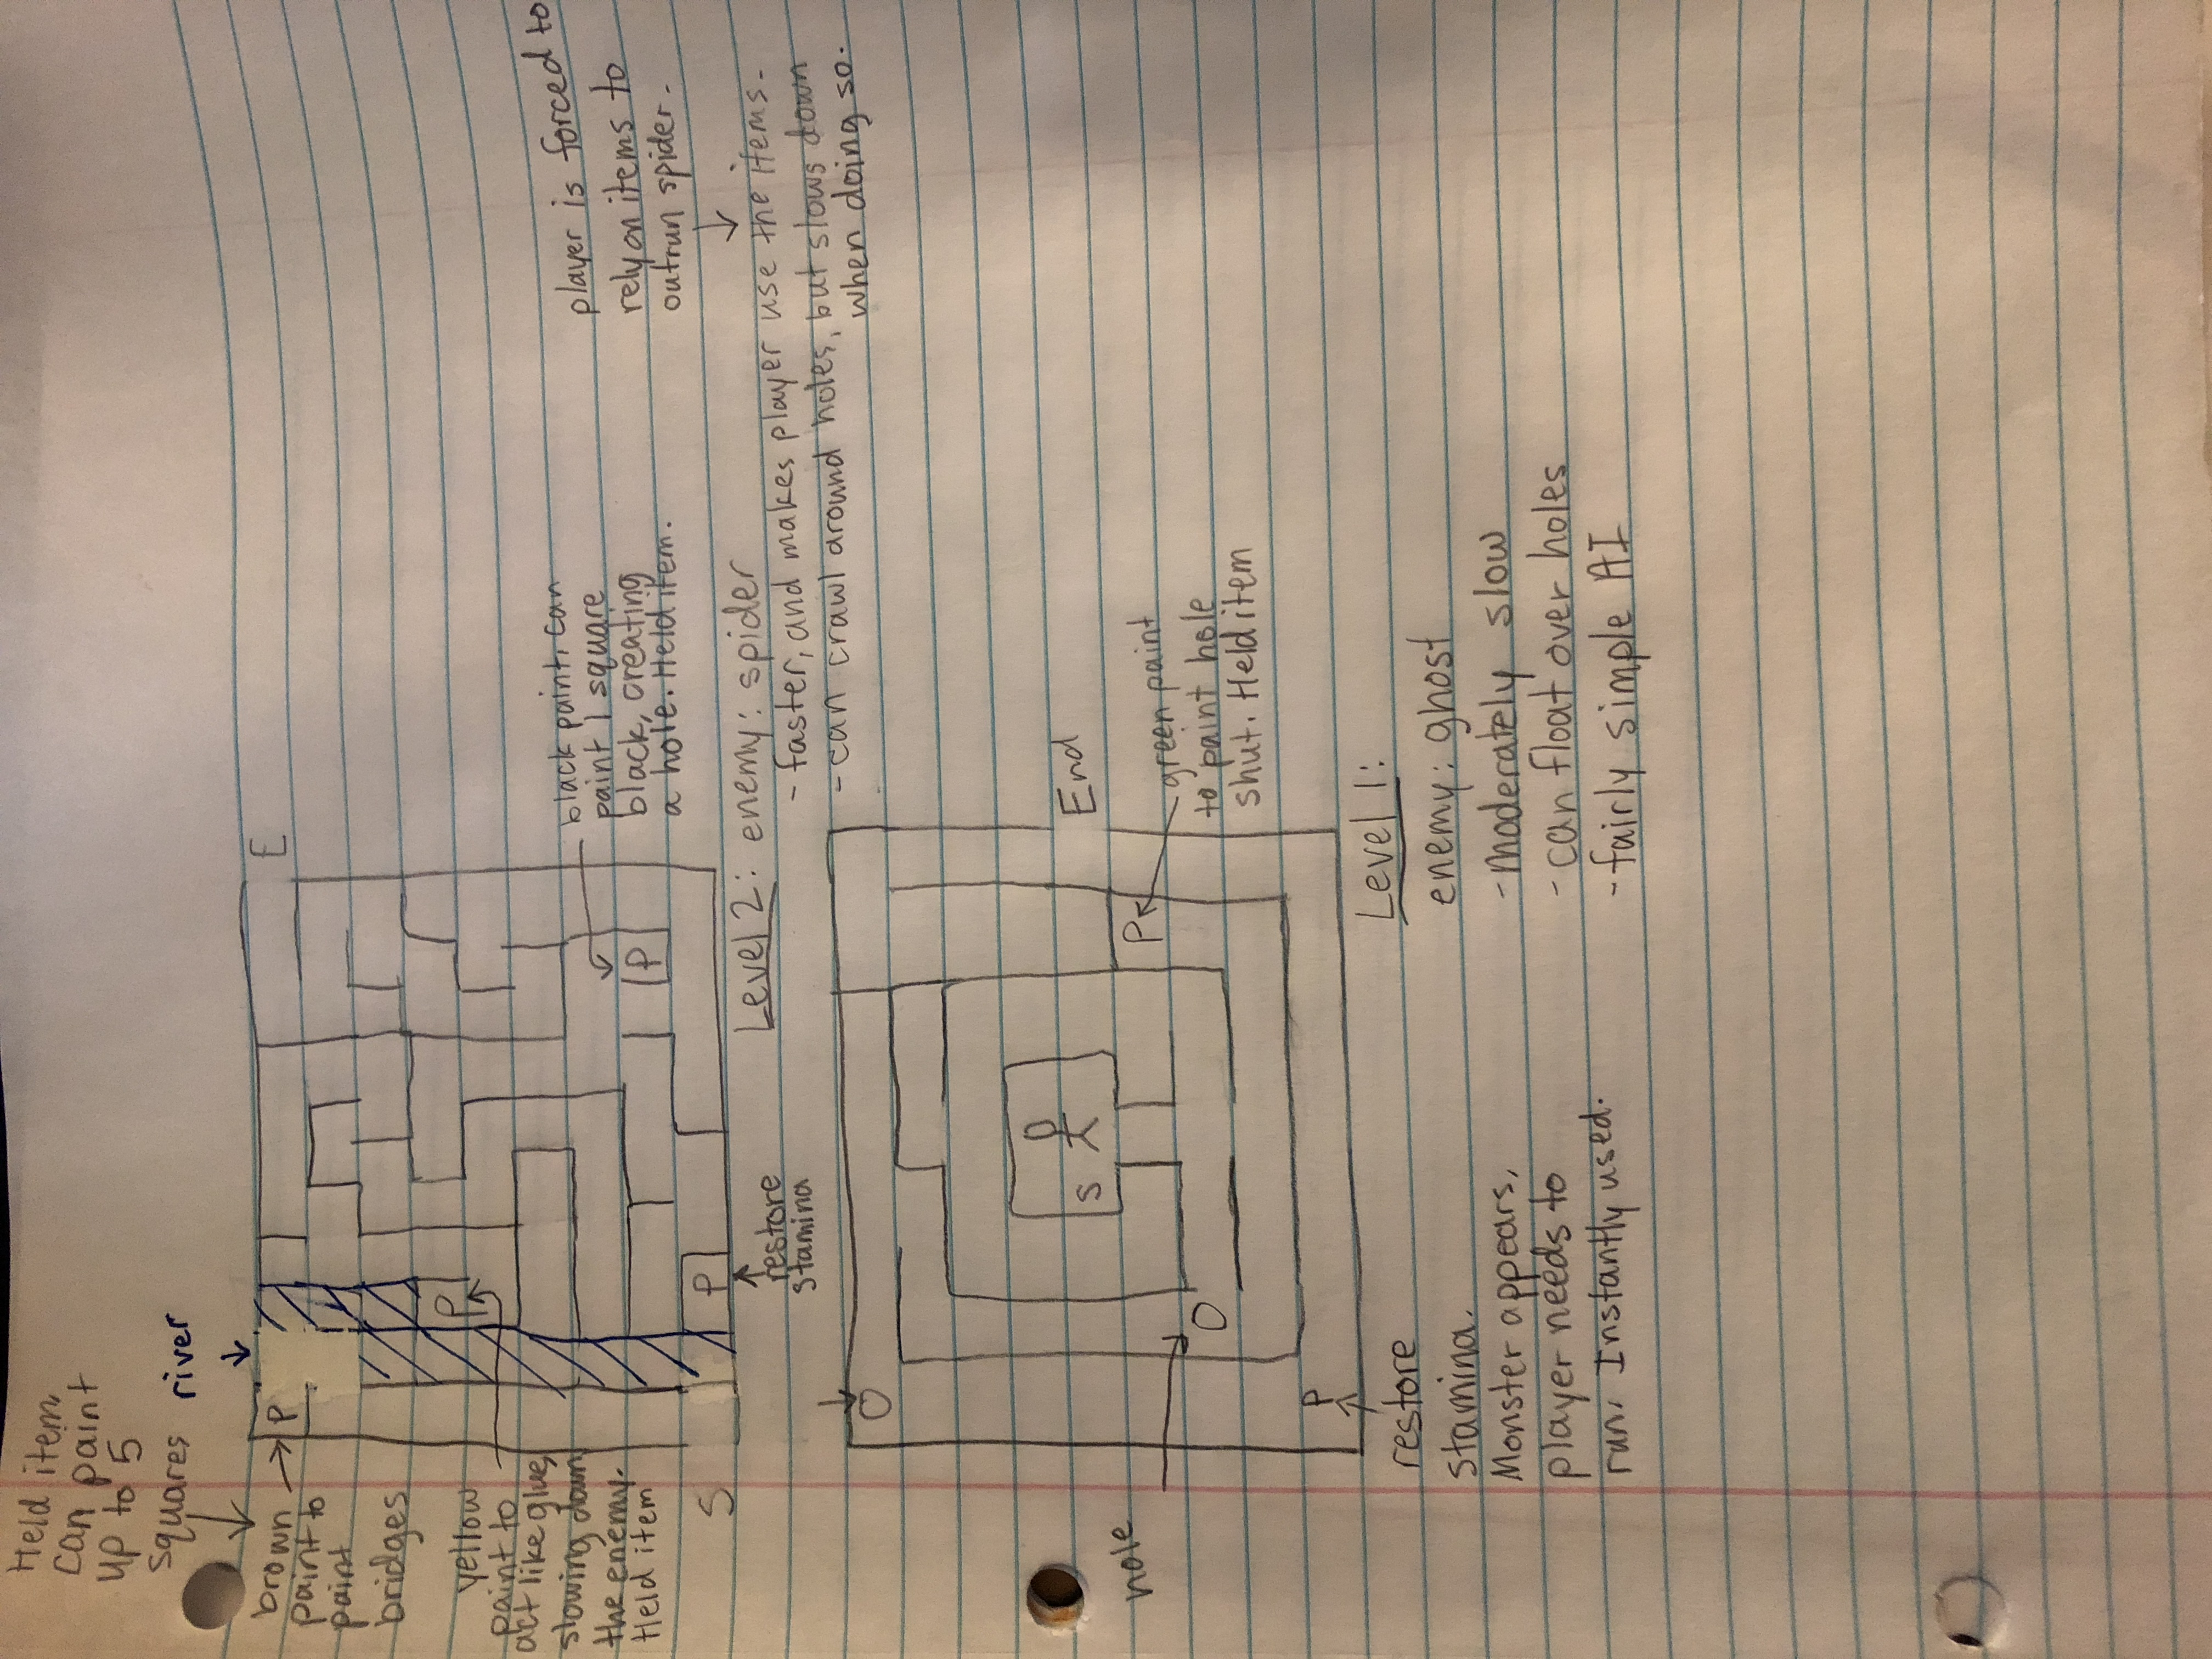 Held item,
can paint
up to 5
squares
river
brown
paint to
paint
bridges
P
E
P
yellow
paint to
act like glue,
slowing down
the enemy.
Held item
black paint, can
paint 1 square
black, creating
a hole. Held item.
P
player is forced to
rely on items to
outrun spider.
S
P
restore
stamina
Level 2: enemy: spider
- faster, and makes player use the items.
- can crawl around holes, but slows down
when doing so.
O
S
End
hole
O
P
green paint
to paint hole
shut. Held item
P
restore
stamina.
Monster appears,
player needs to
run. Instantly used.
Level 1:
enemy: ghost
- moderately slow
- can float over holes
- fairly simple AI